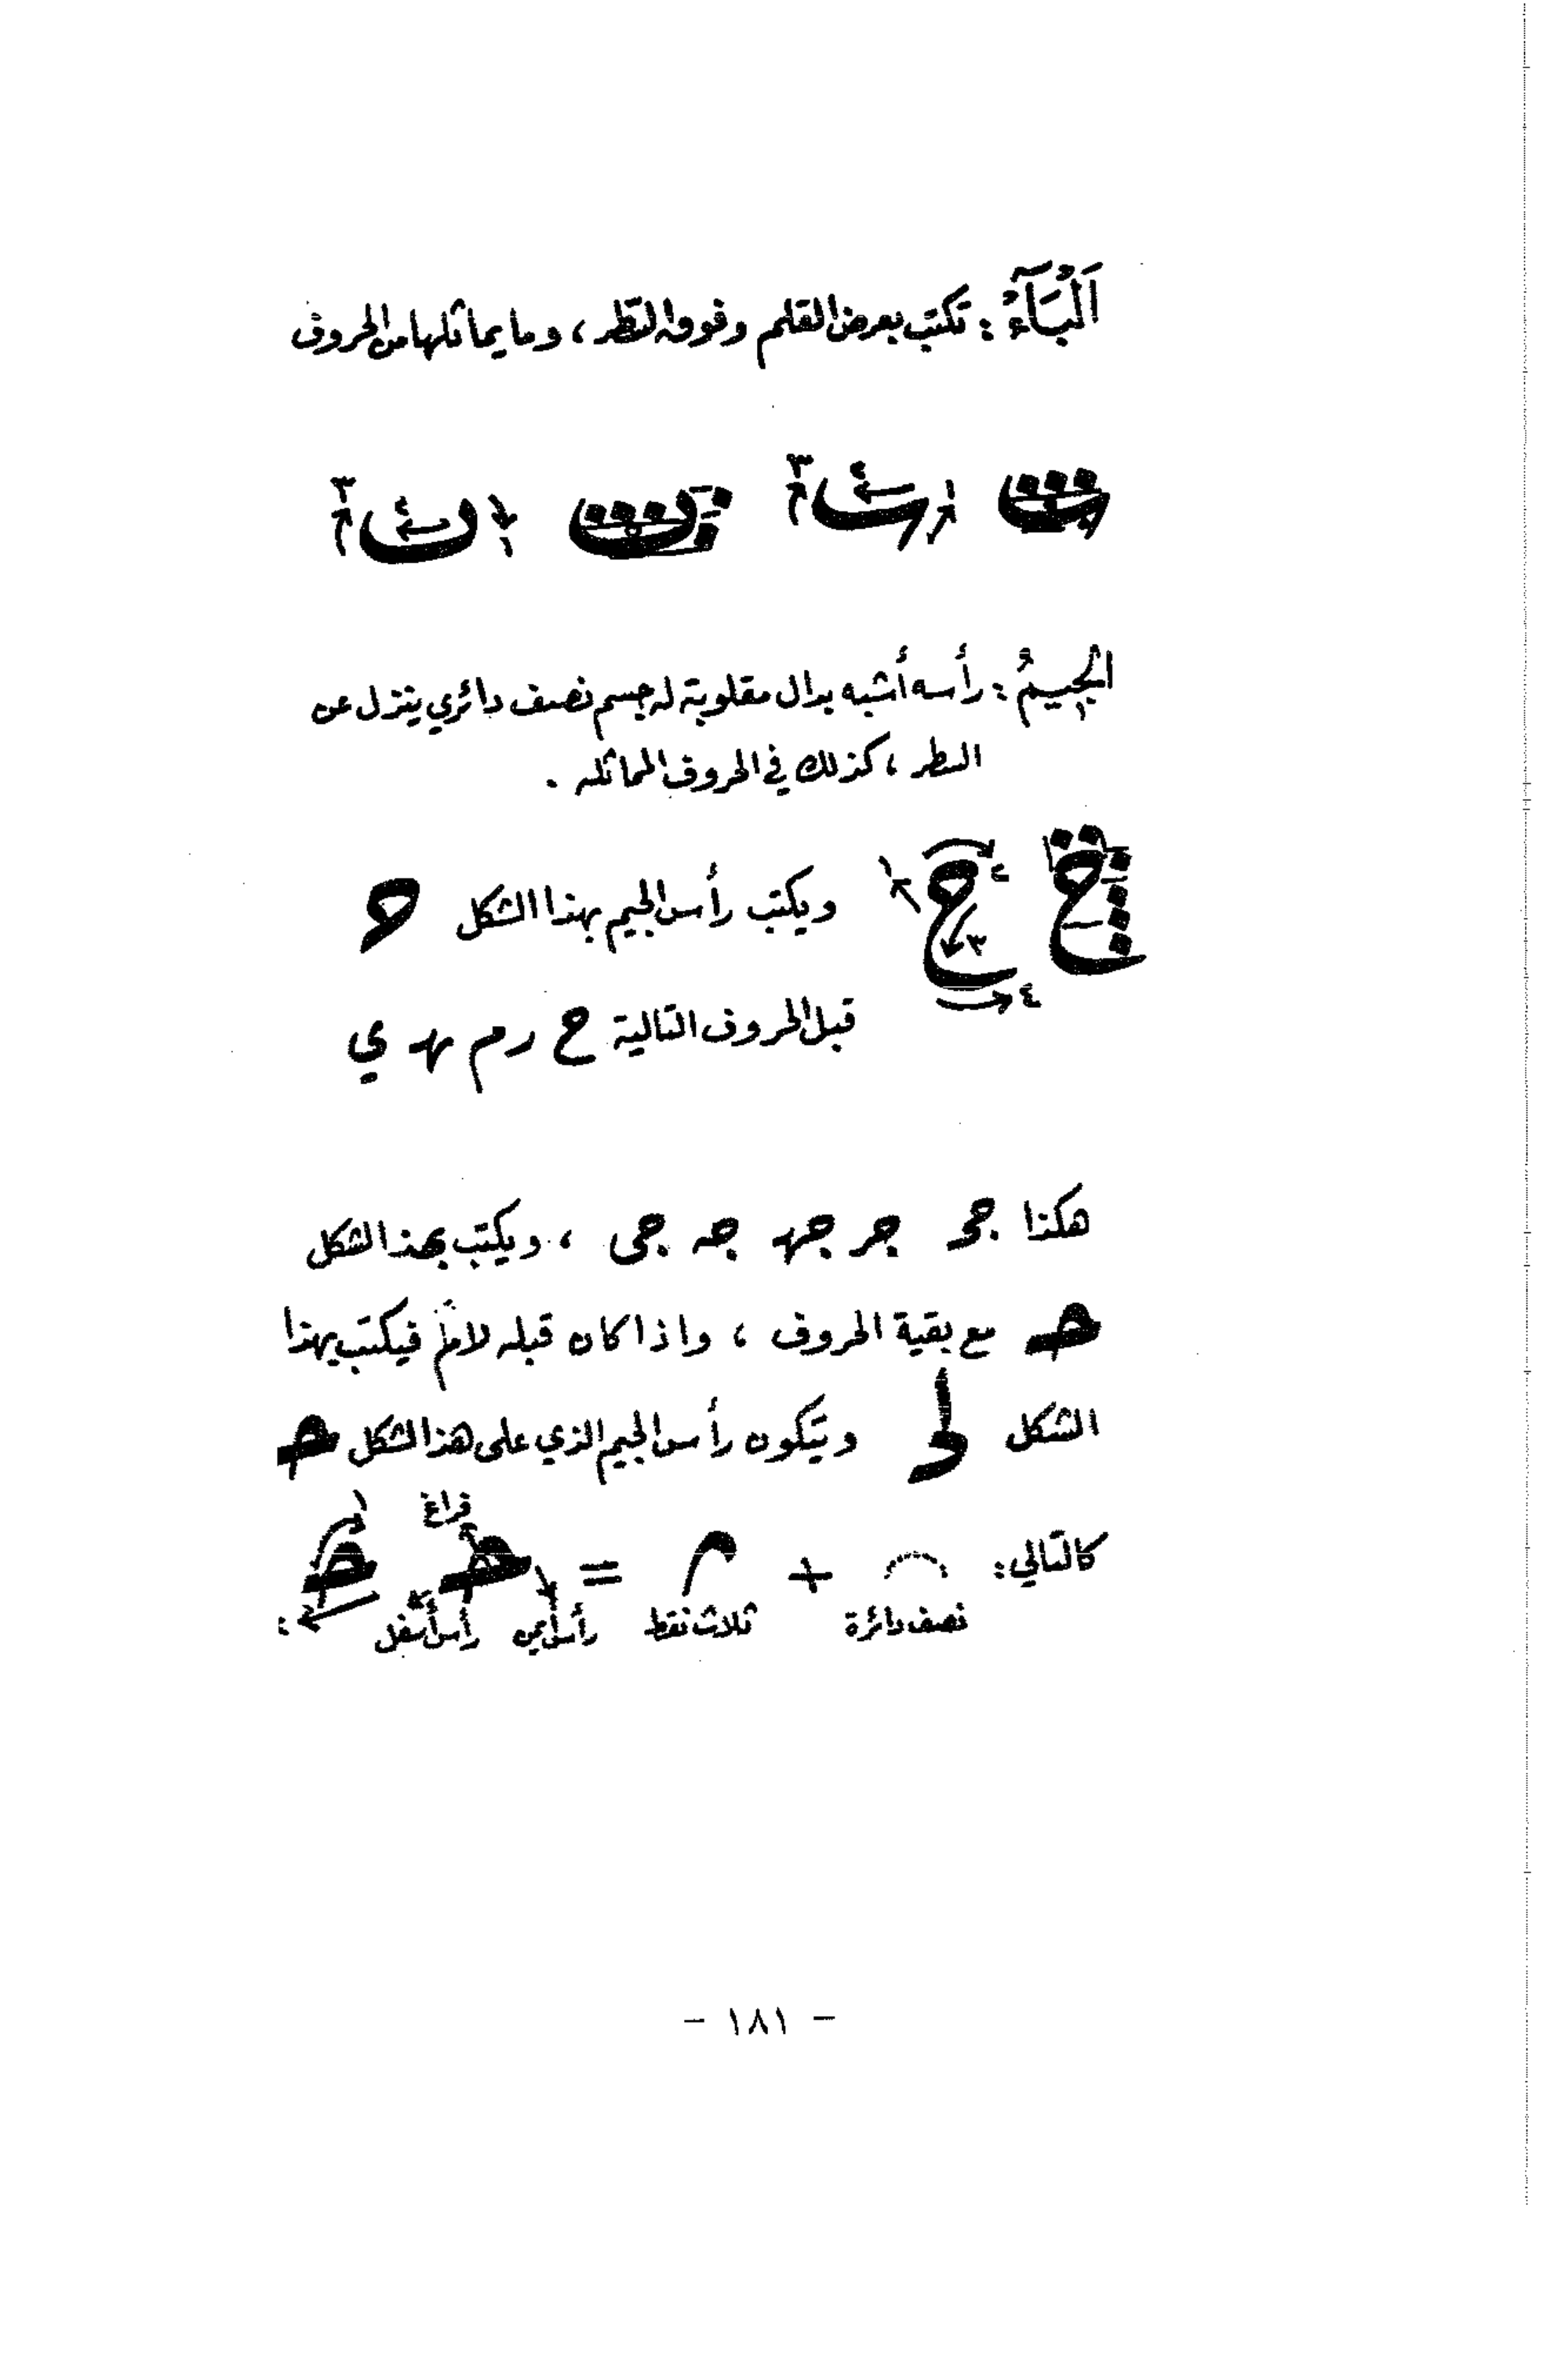 اَلْبَآءُ : تكتب بعرض القلم وفوق السّطر ، وما يماثلها من الحروف
الجِيمُ : رأسه أشبه بدال مقلوبة له جسم نصف دائري ينزل عن
السطر ، كذلك في الحروف المماثله .
ويكتب رأس الجيم بهذا الشكل حـ
قبل الحروف التالية ح ر م هـ ي
هكذا جح جر جهـ جه جى ، ويكتب بهذا الشكل
حـ مع بقية الحروف ، واذا كان قبله لاماً فيكتب بهذا
الشكل لحـ ويتكون رأس الجيم الذي على هذا الشكل حـ
فراغ
كالتالي : + =
نصف دائرة ثلاث نقط رأس أيمن رأس أسفل
- ١٨١ -